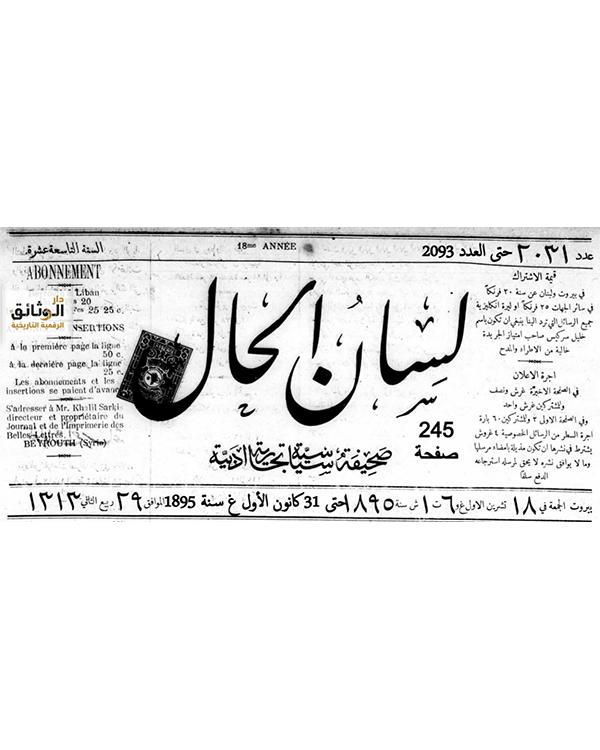 عدد ٢٠٣١ حتى العدد 2093
18me ANNÉE
السنة التاسعة عشرة
قيمة الاشتراك
في بيروت ولبنان عن سنة ٣٠ فرنكاً
في سائر الجهات ٣٥ فرنكاً او ليرة انكليزية
جميع الرسائل التي ترد الينا ينبغي ان تكون باسم
خليل سركيس صاحب امتياز الجريدة
خالية من الاطراء والمدح
اجرة الاعلان
في الصفحة الاخيرة غرش ونصف
وللمشتركين غرش واحد
وفي الصفحة الاولى ٣ وللمشتركين ٦٠ بارة
اجرة السطر من الرسائل الخصوصية ٤ غروش
يشترط في نشرها ان تكون مذيلة بامضاء مرسليها
وما لا يوافق نشره لا يحق لمرسله استرجاعه
الدفع سلفاً
لسان الحال
245
صفحة
صحيفة سياسية تجارية ادبية
ABONNEMENT
Liban
20
25 25 c.
دار
الوثائق
الرقمية التاريخية
INSERTIONS
à la première page la ligne
50 c.
à la dernière page la ligne
25 c.
Les abonnements et les
insertions se paient d'avance
S'adresser à Mr. Khalil Sarkis
directeur et propriétaire du
Journal et de l'Imprimerie des
Belles-Lettres,
BEYROUTH (Syrie)
بيروت الجمعة في ١٨ تشرين الاول غ و ٦ ت ١ ش سنة ١٨٩٥ حتى 31 كانون الأول غ سنة 1895 الموافق ٢٩ ربيع الثاني ١٣١٣